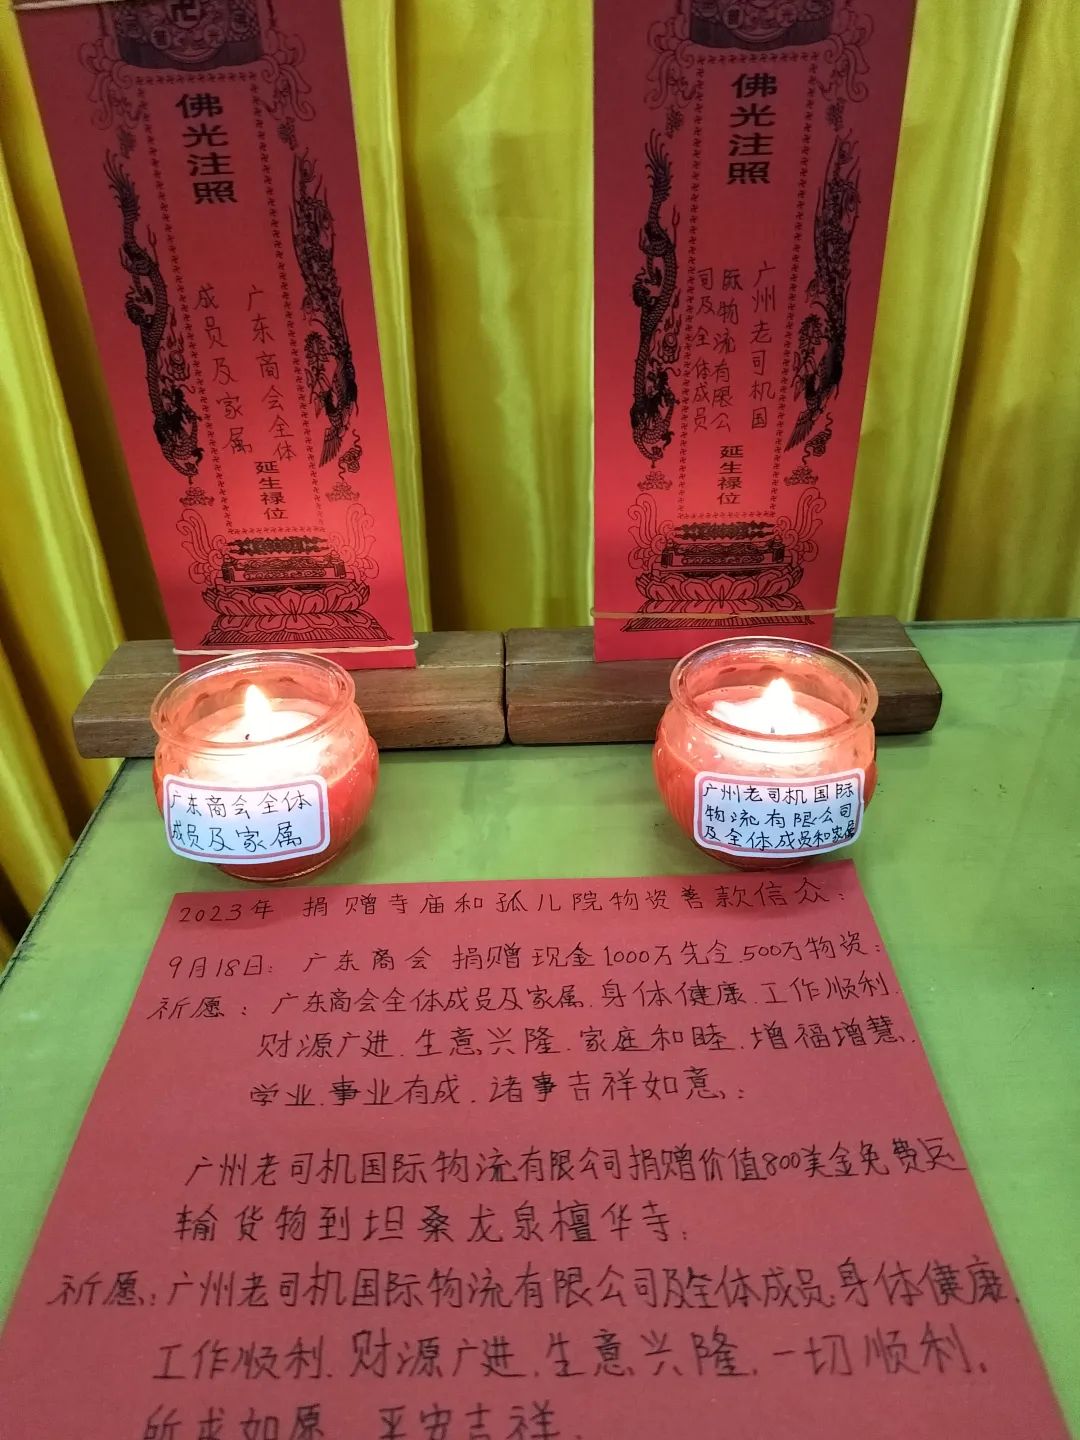 佛光注照
广东商会全体
成员及家属
延生禄位
佛光注照
广州老司机国
际物流有限公
司及全体成员
延生禄位
广东商会全体
成员及家属
广州老司机国际
物流有限公司
及全体成员和家属
2023年 捐赠寺庙和孤儿院物资善款信众:
9月18日: 广东商会 捐赠现金1000万先令.500万物资:
祈愿: 广东商会全体成员及家属.身体健康.工作顺利.
财源广进.生意兴隆.家庭和睦.增福增慧.
学业.事业有成.诸事吉祥如意.:
广州老司机国际物流有限公司捐赠价值800美金免费运
输货物到坦桑龙泉檀华寺:
祈愿:广州老司机国际物流有限公司及全体成员.身体健康.
工作顺利.财源广进.生意兴隆.一切顺利.
所求如愿.平安吉祥.